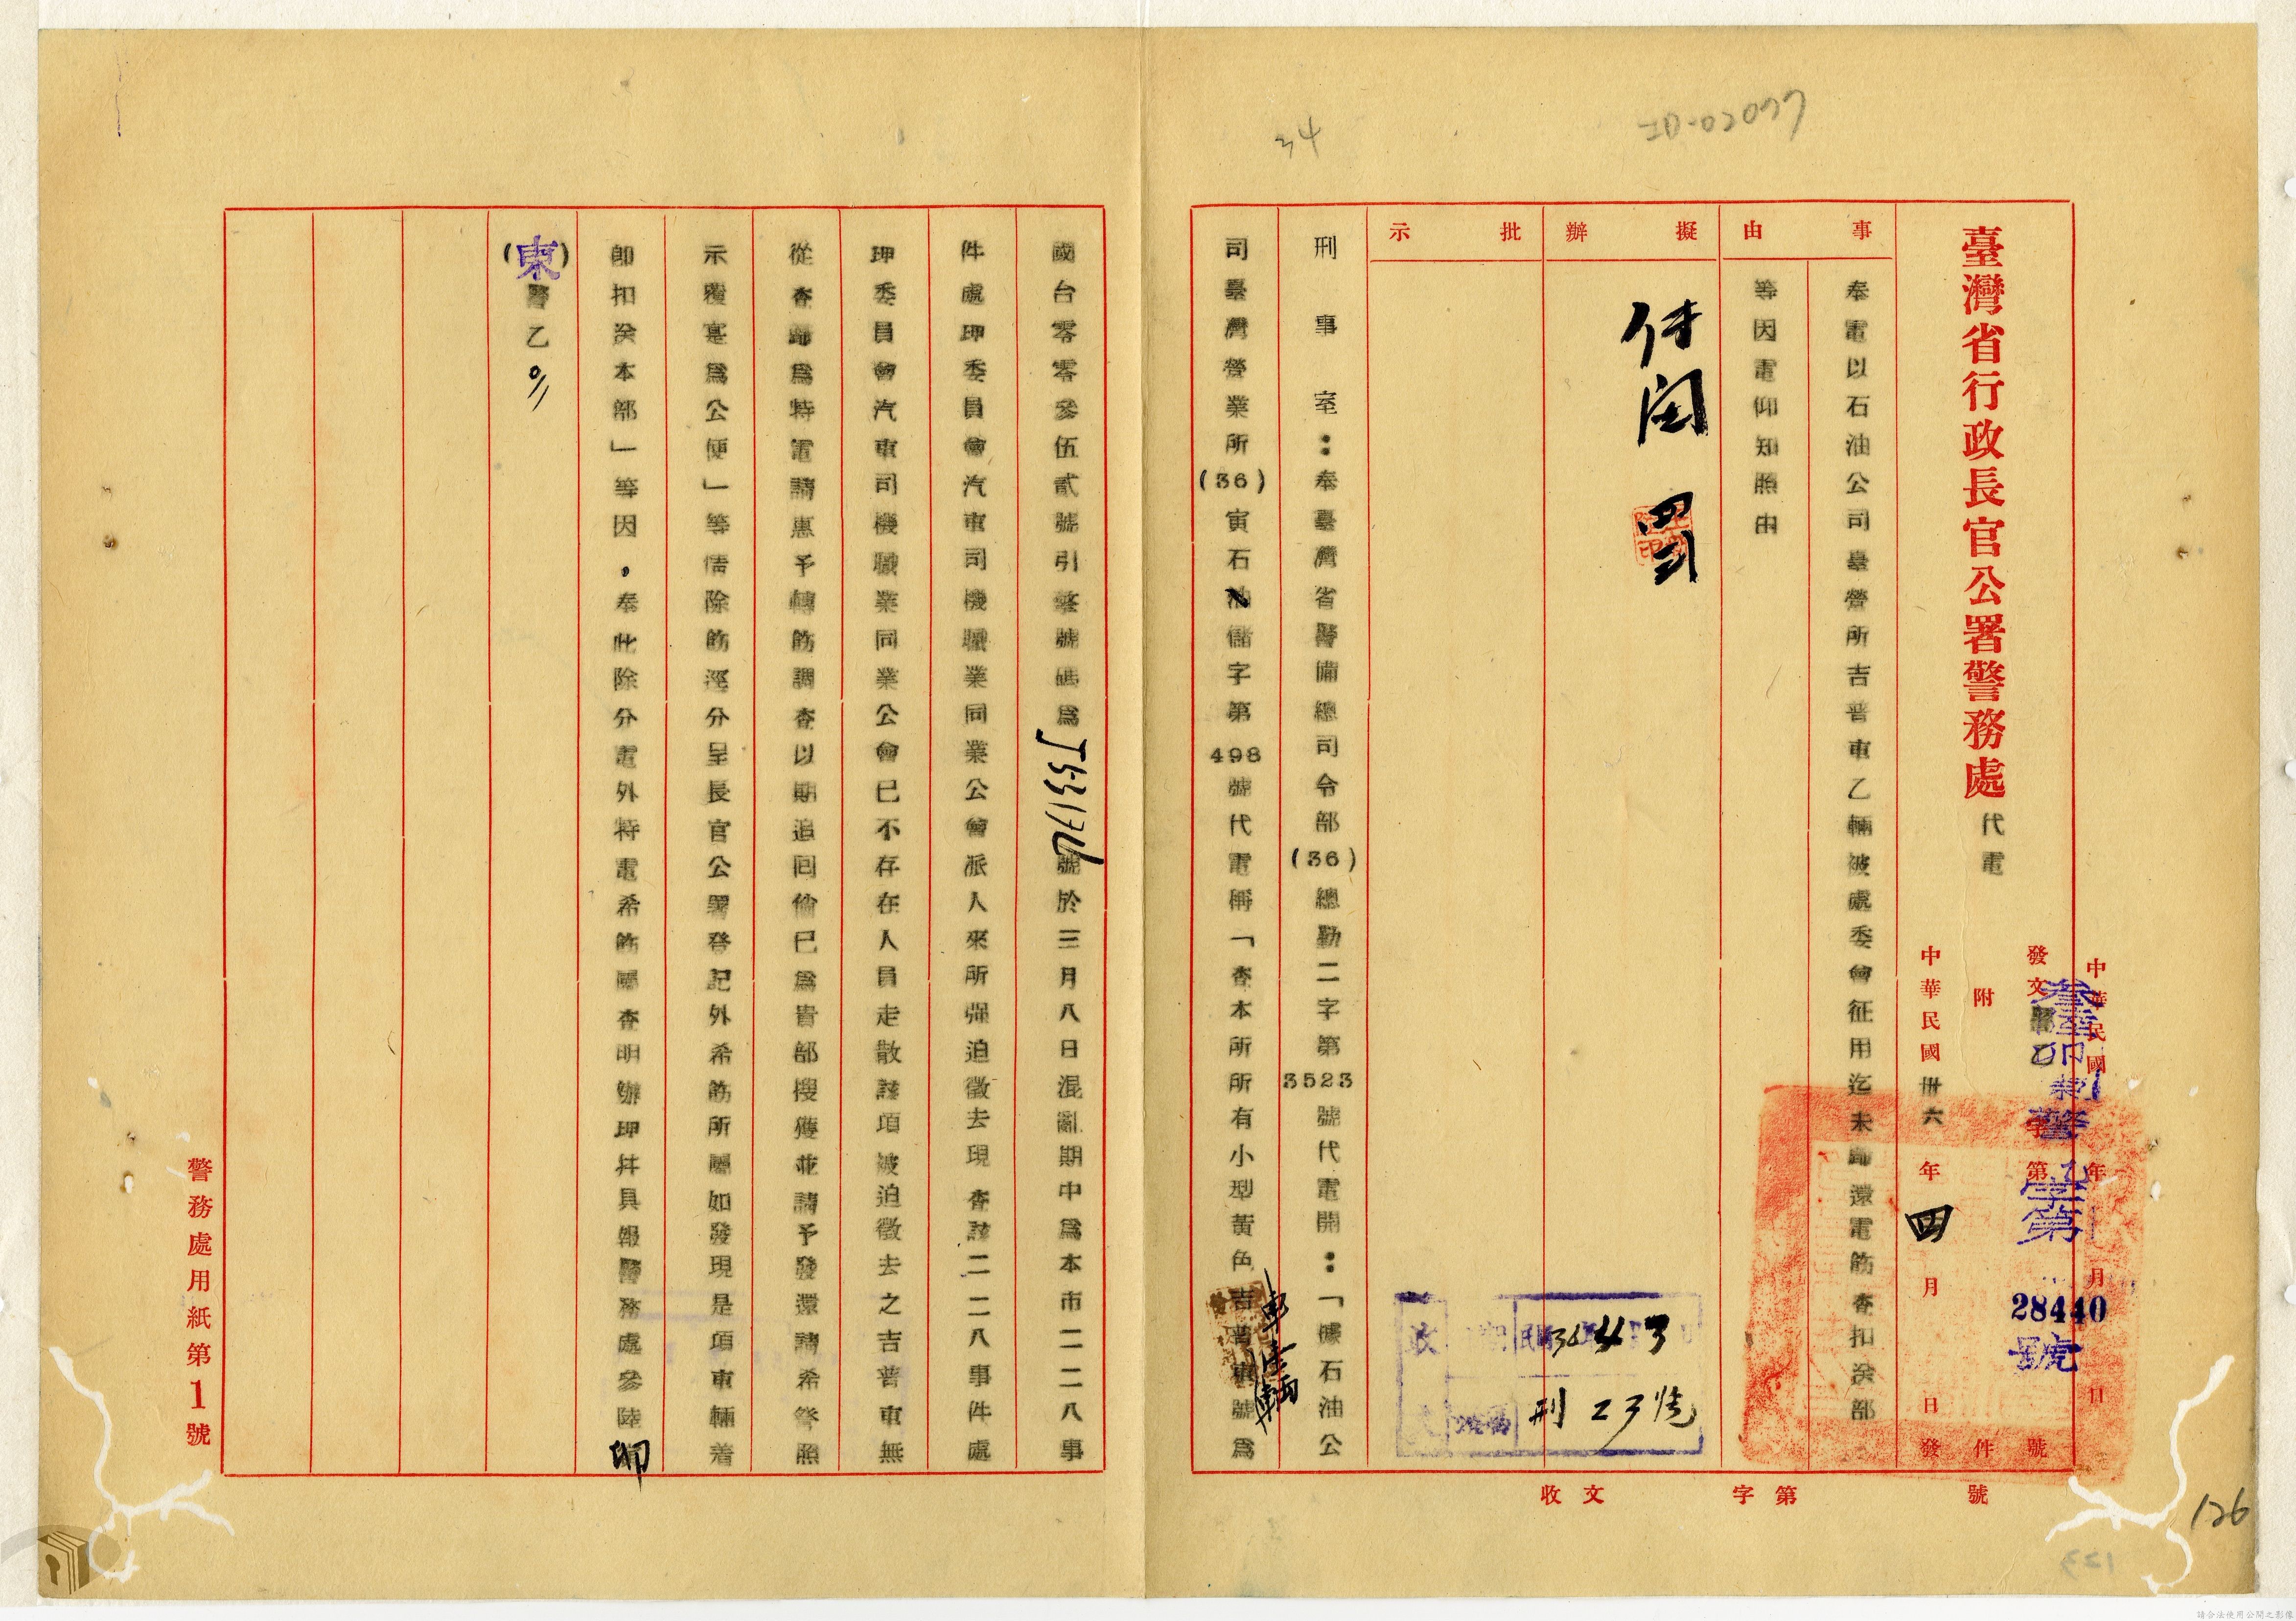 ID-02077
34
中華民國 年 月 日
發文 第 號
叁陸卯 警 乙字第 28440 號
臺灣省行政長官公署警務處 代電
附 件
中華民國卅六年四月 日發
事由
奉電以石油公司臺營所吉普車乙輛被處委會征用迄未歸還電飭查扣送部
等因電仰知照由
擬辦
存閱
批示
收文 字第 號
36 4 3
刑 23 號
刑事室：奉臺灣省警備總司令部(36)總勤二字第3523號代電開：「據石油公
司臺灣營業所(36)寅石油儲字第498號代電稱「查本所所有小型黃色吉普車壹輛車號為
國台零零參伍貳號引擎號碼為J53176號於三月八日混亂期中為本市二二八事
件處理委員會汽車司機職業同業公會派人來所強迫徵去現查該二二八事件處
理委員會汽車司機職業同業公會已不存在人員走散該項被迫徵去之吉普車無
從查歸為特電請惠予轉飭調查以期追回倘已為貴部搜獲並請予發還請希詧照
示覆寔為公便」等情除飭逕分呈長官公署登記外希飭所屬如發現是項車輛着
即扣送本部」等因，奉此除分電外特電希飭屬查明辦理幷具報警務處參陸卯
(東)警乙
警務處用紙第1號
126
123
請合法使用公開之影像